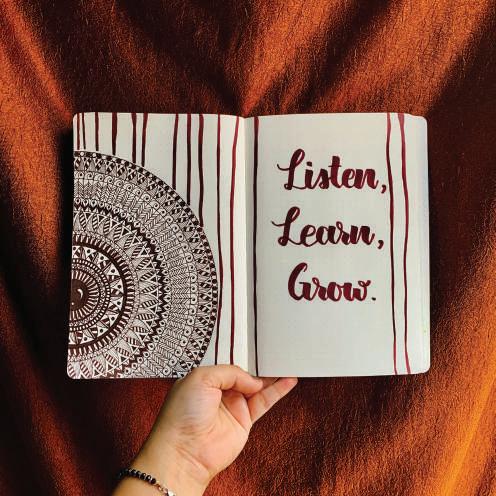 Listen,
Learn,
Grow.